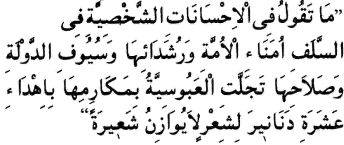 ”مَا تَقُولُ فِى الْاِحْسَانَاتِ الشَّخْصِيَّةِ فِى
السَّلَفِ اُمَنَاءِ الْاُمَّةِ وَرُشَدَائِهَا وَسُيُوفِ الدَّوْلَةِ
وَصَلَاحِهَا تَجَلَّتِ الْعَبُوسِيَّةُ بِمَكَارِمِهَا بِاِهْدَاءِ
عَشَرَةِ دَنَانِيرَ لِشِعْرٍ لَايُوَازِنُ شَعِيرَةً“